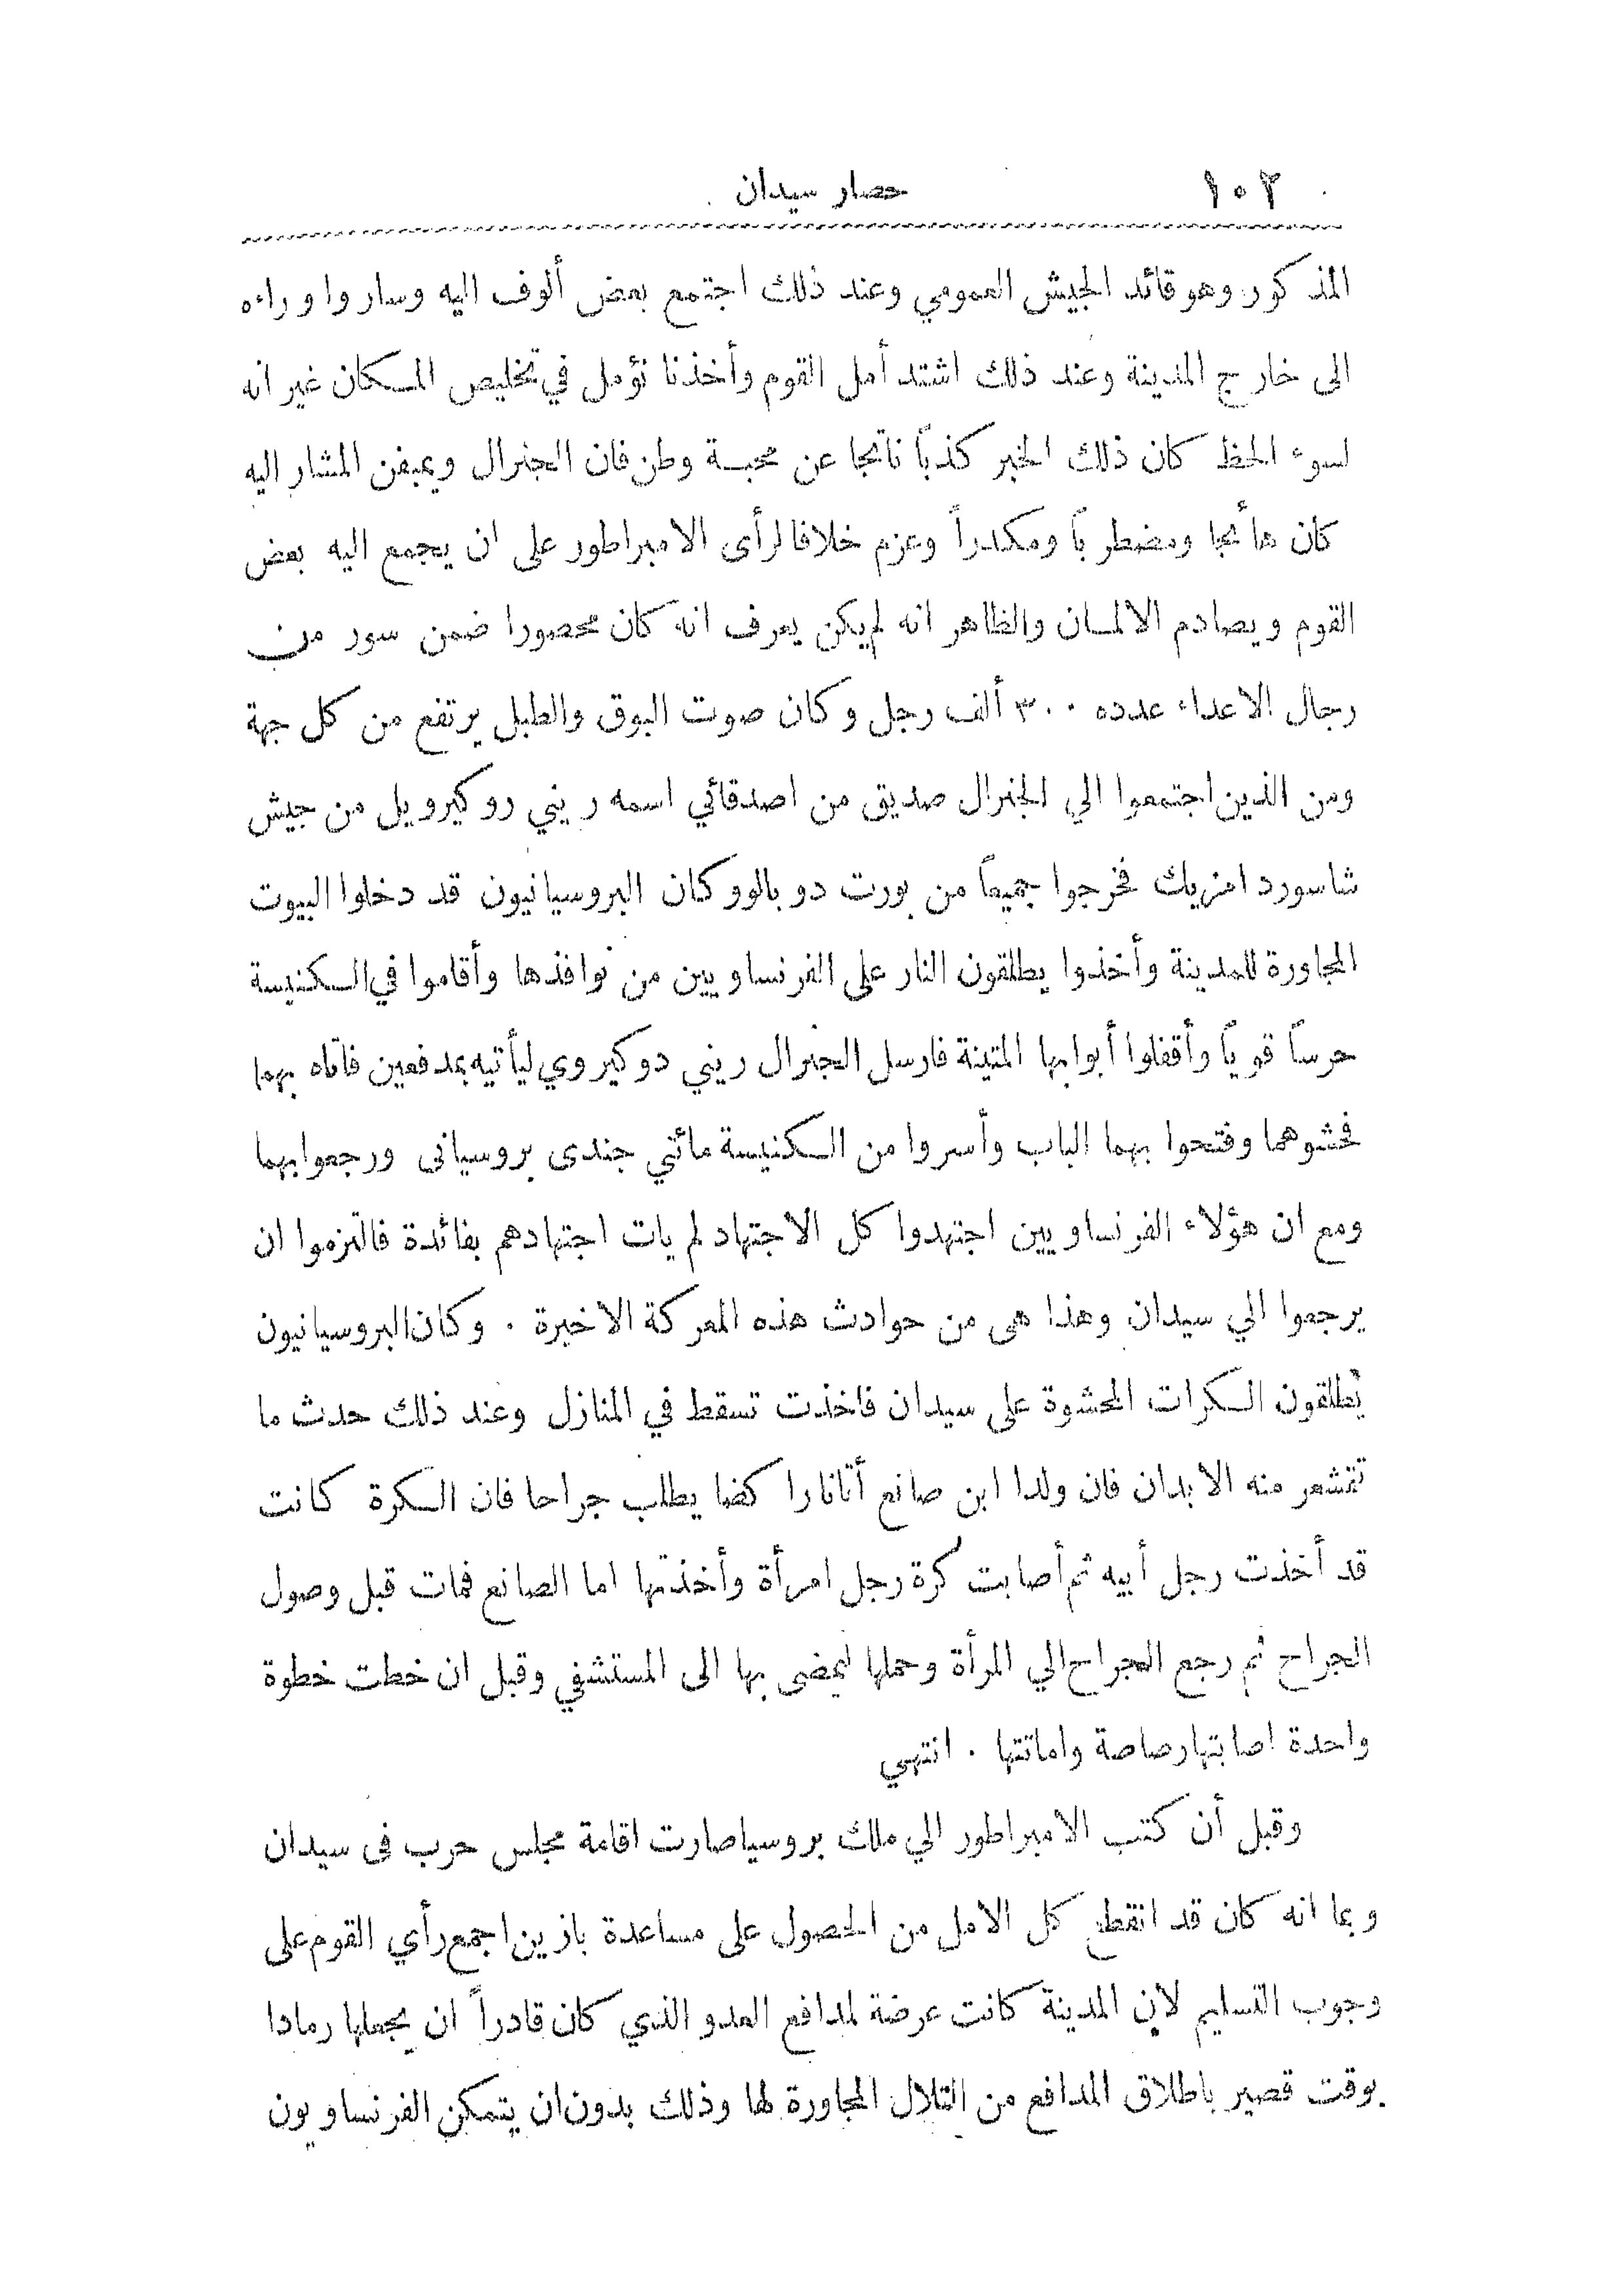 ١٥٢ حصار سيدان
المذكور وهو قائد الجيش العمومي وعند ذلك اجتمع بعض ألوف اليه وساروا وراءه
الى خارج المدينة وعند ذلك اشتد أمل القوم وأخذنا نؤمل في تخليص المكان غير انه
لسوء الحظ كان ذلك الخبر كذباً ناتجا عن محبة وطن فان الجنرال ويمبفن المشار اليه
كان هائجا ومضطرباً ومكدراً وعزم خلافا لرأى الامبراطور على ان يجمع اليه بعض
القوم ويصادم الالمان والظاهر انه لم يكن يعرف انه كان محصورا ضمن سور من
رجال الاعداء عدده ٣٠٠ ألف رجل وكان صوت البوق والطبل يرتفع من كل جهة
ومن الذين اجتمعوا الي الجنرال صديق من اصدقائي اسمه ريني رو كيرويل من جيش
شاسورد امزيك فخرجوا جميعاً من بورت دو بالوو كان البروسيانيون قد دخلوا البيوت
المجاورة للمدينة وأخذوا يطلقون النار على الفرنساويين من نوافذها وأقاموا في الكنيسة
حرساً قوياً وأقفلوا أبوابها المتينة فارسل الجنرال ريني دو كيروي ليأتيه بمدفعين فاتاه بهما
فحشوهما وفتحوا بهما الباب وأسروا من الكنيسة مائتي جندى بروسيانى ورجعوا بهما
ومع ان هؤلاء الفرنساويين اجتهدوا كل الاجتهاد لم يات اجتهادهم بفائدة فالتزموا ان
يرجعوا الي سيدان وهذا هى من حوادث هذه المعركة الاخيرة . وكان البروسيانيون
يطلقون الكرات المحشوة على سيدان فاخذت تسقط في المنازل وعند ذلك حدث ما
تقشعر منه الابدان فان ولدا ابن صانع أتانا راكضا يطلب جراحا فان الكرة كانت
قد أخذت رجل أبيه ثم أصابت كرة رجل امرأة وأخذتها اما الصانع فمات قبل وصول
الجراح ثم رجع الجراح الي المرأة وحملها ليمضى بها الى المستشفي وقبل ان خطت خطوة
واحدة اصابتها رصاصة واماتتها . انتهي
وقبل أن كتب الامبراطور الي ملك بروسيا صارت اقامة مجلس حرب فى سيدان
وبما انه كان قد انقطع كل الامل من الحصول على مساعدة بازين اجمع رأي القوم على
وجوب التسليم لان المدينة كانت عرضة لمدافع العدو الذي كان قادراً ان يجعلها رمادا
بوقت قصير باطلاق المدافع من التلال المجاورة لها وذلك بدون ان يتمكن الفرنساويون